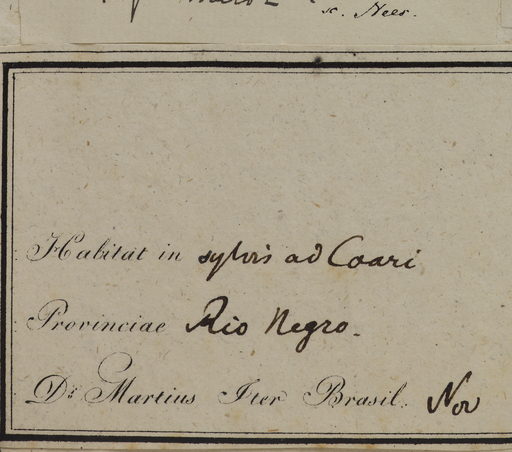 sc. Nees.
Habitat in sylvis ad Coari
Provinciae Rio Negro.
Dr. Martius Iter Brasil. Nov